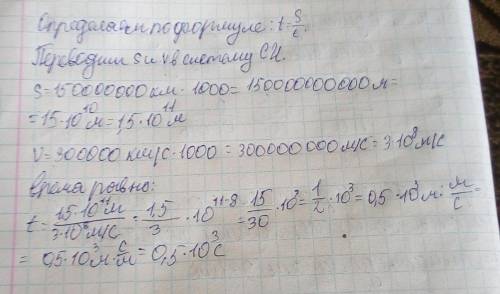 Определяем по формуле: t = S/c.
Переводим S и v в систему СИ.
S = 150000000 км · 1000 = 150000000000 м =
= 15·10¹⁰ м = 1,5·10¹¹ м
V = 300000 км/с · 1000 = 300000000 м/с = 3·10⁸ м/с
Время равно:
t = 1,5·10¹¹ м / 3·10⁸ м/с = 1,5/3 · 10¹¹⁻⁸ = 15/30 · 10³ = 1/2 · 10³ = 0,5 · 10³ м : м/с =
= 0,5·10³ м · с/м = 0,5·10³ с